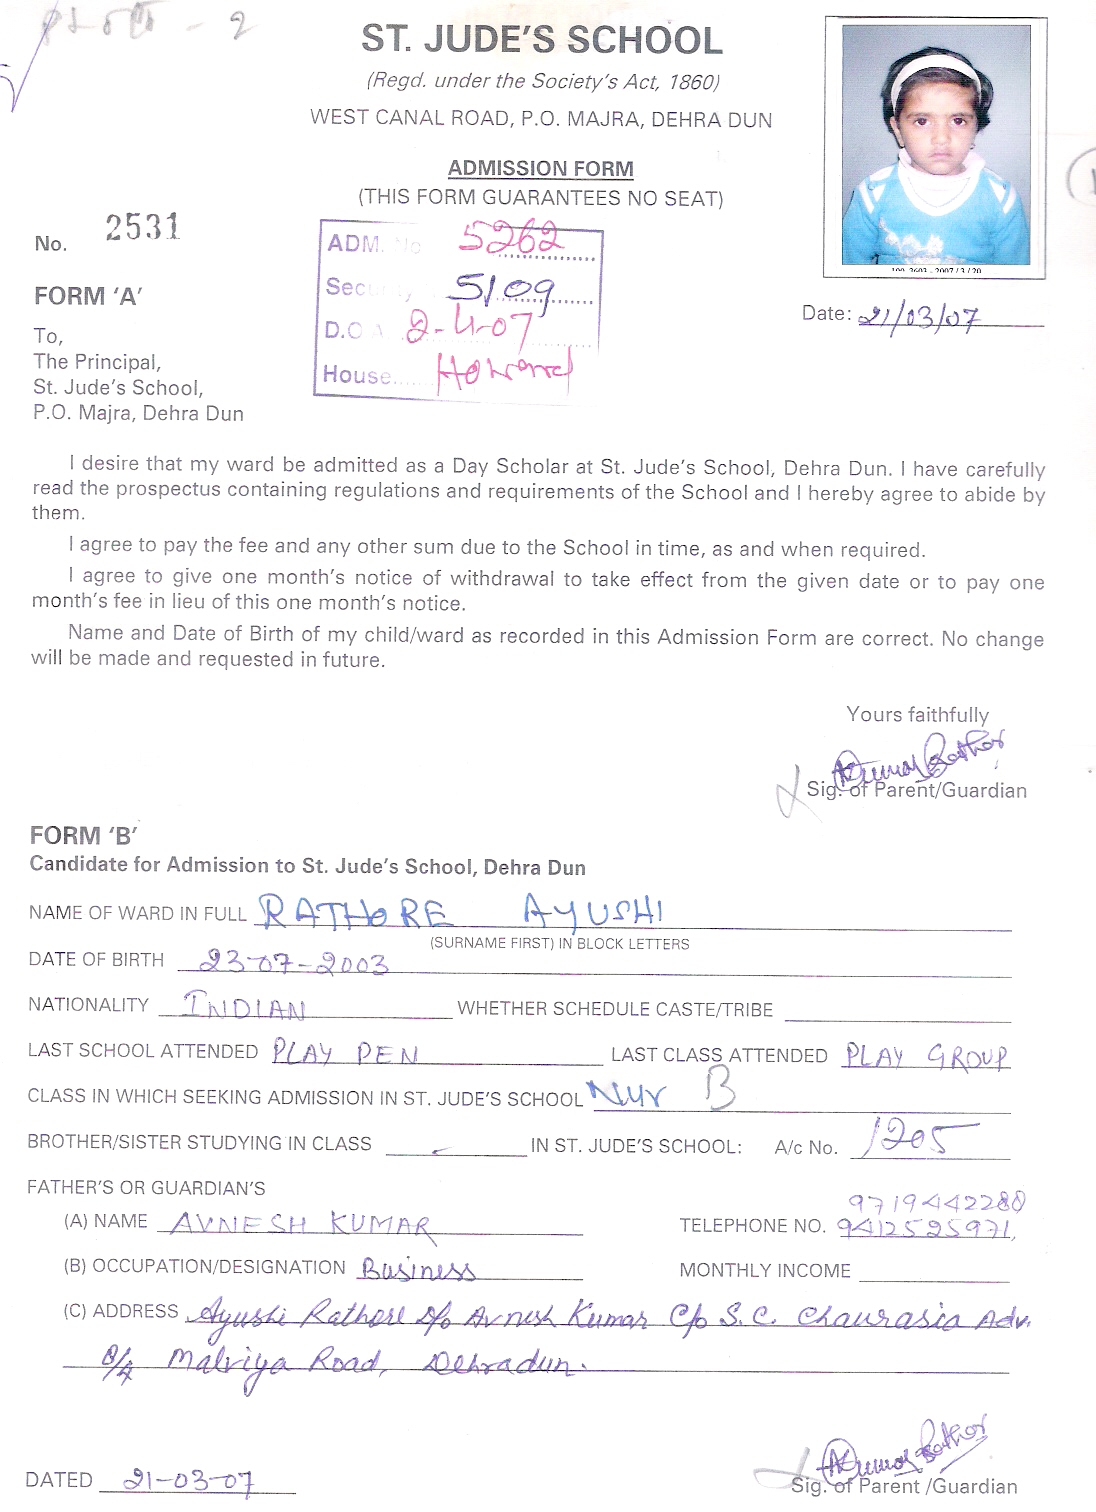 - 2
ST. JUDE'S SCHOOL
(Regd. under the Society's Act, 1860)
WEST CANAL ROAD, P.O. MAJRA, DEHRA DUN
ADMISSION FORM
(THIS FORM GUARANTEES NO SEAT)
No. 2531
ADM. No 5262
Security 5109
D.O.A 2-4-07
House...... Howard
2007/3/20
FORM 'A'
Date: 21/03/07
To,
The Principal,
St. Jude's School,
P.O. Majra, Dehra Dun
I desire that my ward be admitted as a Day Scholar at St. Jude's School, Dehra Dun. I have carefully
read the prospectus containing regulations and requirements of the School and I hereby agree to abide by
them.
I agree to pay the fee and any other sum due to the School in time, as and when required.
I agree to give one month's notice of withdrawal to take effect from the given date or to pay one
month's fee in lieu of this one month's notice.
Name and Date of Birth of my child/ward as recorded in this Admission Form are correct. No change
will be made and requested in future.
Yours faithfully
AKumar Rathor
Sig. of Parent/Guardian
FORM 'B'
Candidate for Admission to St. Jude's School, Dehra Dun
NAME OF WARD IN FULL RATHORE AYUSHI
(SURNAME FIRST) IN BLOCK LETTERS
DATE OF BIRTH 23-07-2003
NATIONALITY INDIAN WHETHER SCHEDULE CASTE/TRIBE
LAST SCHOOL ATTENDED PLAY PEN LAST CLASS ATTENDED PLAY GROUP
CLASS IN WHICH SEEKING ADMISSION IN ST. JUDE'S SCHOOL Nur B
BROTHER/SISTER STUDYING IN CLASS - IN ST. JUDE'S SCHOOL: A/c No. 1205
FATHER'S OR GUARDIAN'S 9719442280
(A) NAME AVNESH KUMAR TELEPHONE NO. 9412525971,
(B) OCCUPATION/DESIGNATION Business MONTHLY INCOME
(C) ADDRESS Ayushi Rathore D/o Avnesh Kumar C/o S.C. Chaurasia Adv.
8/4 Malviya Road, Dehradun.
AKumar Rathor
DATED 21-03-07 Sig. of Parent /Guardian